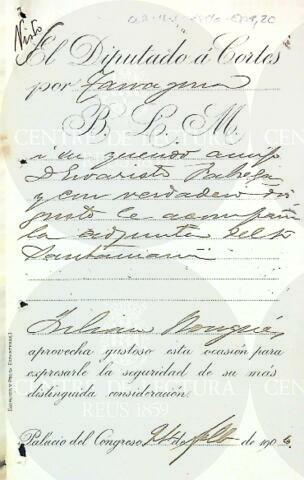 Visto
El Diputado á Cortes
por Tarragona
B. L. M.
á su querido amigo
D. Evaristo Fàbregas
y con verdadero dis
gusto le acompaña
la adjunta del Sr.
Santamaria
Julian Nougués
aprovecha gustoso esta ocasión para
expresarle la seguridad de su más
distinguida consideración.
Palacio del Congreso 24 de de 1906.
CENTRE DE LECTURA
REUS 1859